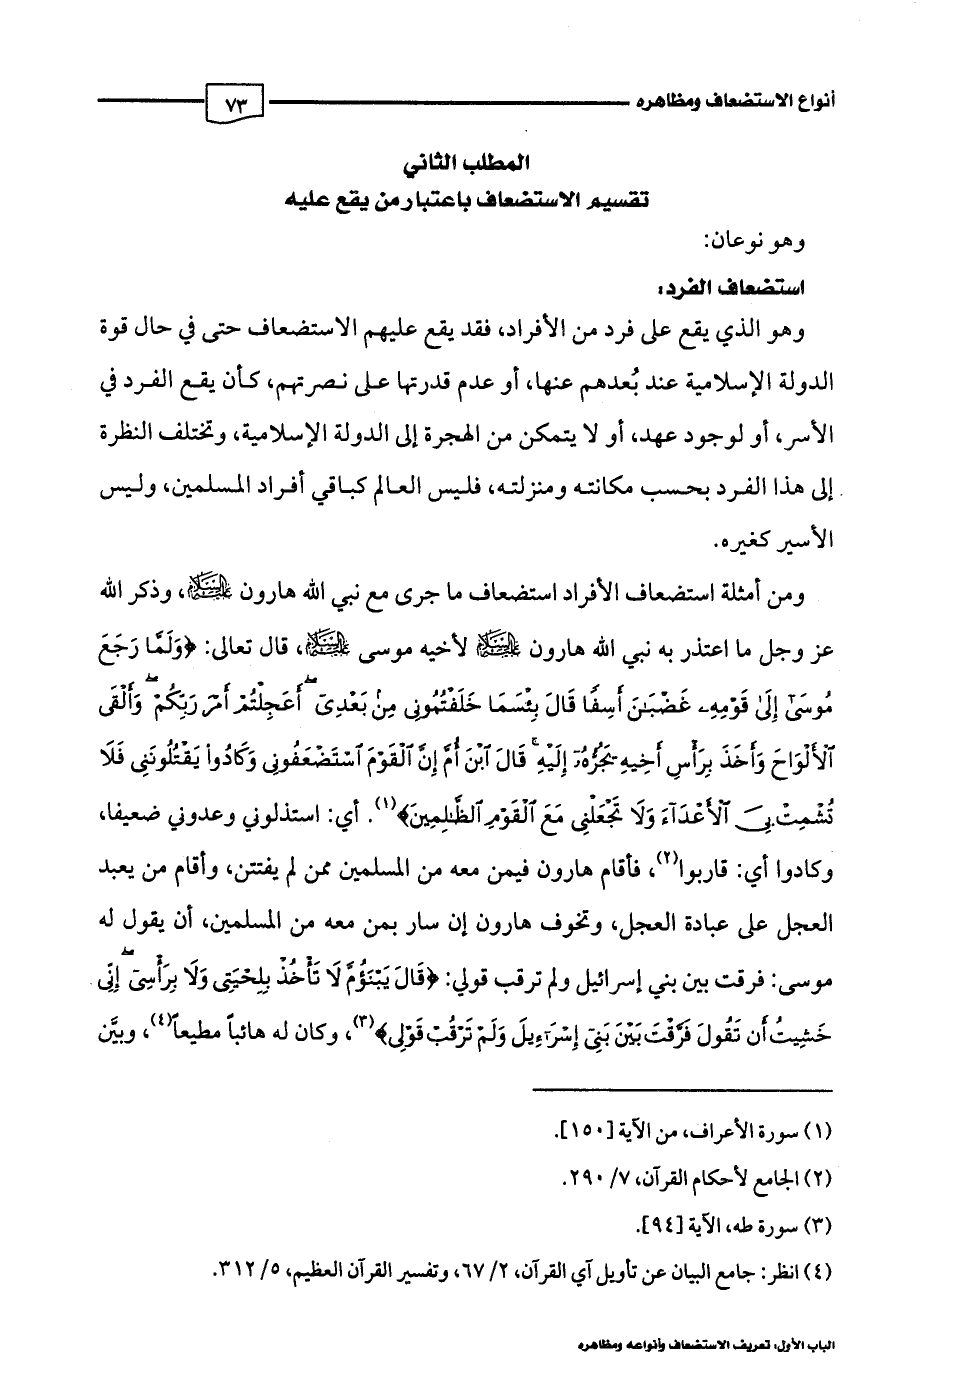 أنواع الاستضعاف ومظاهره
٧٣
المطلب الثاني
تقسيم الاستضعاف باعتبار من يقع عليه
وهو نوعان:
استضعاف الفرد:
وهو الذي يقع على فرد من الأفراد، فقد يقع عليهم الاستضعاف حتى في حال قوة
الدولة الإسلامية عند بُعدهم عنها، أو عدم قدرتها على نصرتهم، كأن يقع الفرد في
الأسر، أو لوجود عهد، أو لا يتمكن من الهجرة إلى الدولة الإسلامية، وتختلف النظرة
إلى هذا الفرد بحسب مكانته ومنزلته، فليس العالم كباقي أفراد المسلمين، وليس
الأسير كغيره.
ومن أمثلة استضعاف الأفراد استضعاف ما جرى مع نبي الله هارون ﵇، وذكر الله
عز وجل ما اعتذر به نبي الله هارون ﵇ لأخيه موسى ﵇، قال تعالى: ﴿وَلَمَّا رَجَعَ
مُوسَىٰٓ إِلَىٰ قَوْمِهِۦ غَضْبَٰنَ أَسِفًا قَالَ بِئْسَمَا خَلَفْتُمُونِى مِنۢ بَعْدِىٓ ۖ أَعَجِلْتُمْ أَمْرَ رَبِّكُمْ ۖ وَأَلْقَى
ٱلْأَلْوَاحَ وَأَخَذَ بِرَأْسِ أَخِيهِ يَجُرُّهُۥٓ إِلَيْهِ ۚ قَالَ ٱبْنَ أُمَّ إِنَّ ٱلْقَوْمَ ٱسْتَضْعَفُونِى وَكَادُوا۟ يَقْتُلُونَنِى فَلَا
تُشْمِتْ بِىَ ٱلْأَعْدَآءَ وَلَا تَجْعَلْنِى مَعَ ٱلْقَوْمِ ٱلظَّٰلِمِينَ﴾(١). أي: استذلوني وعدوني ضعيفا،
وكادوا أي: قاربوا(٢)، فأقام هارون فيمن معه من المسلمين ممن لم يفتتن، وأقام من يعبد
العجل على عبادة العجل، وتخوف هارون إن سار بمن معه من المسلمين، أن يقول له
موسى: فرقت بين بني إسرائيل ولم ترقب قولي: ﴿قَالَ يَبْنَؤُمَّ لَا تَأْخُذْ بِلِحْيَتِى وَلَا بِرَأْسِىٓ ۖ إِنِّى
خَشِيتُ أَن تَقُولَ فَرَّقْتَ بَيْنَ بَنِىٓ إِسْرَٰٓءِيلَ وَلَمْ تَرْقُبْ قَوْلِى﴾(٣)، وكان له هائباً مطيعاً(٤)، وبيَّن
(١) سورة الأعراف، من الآية [١٥٠].
(٢) الجامع لأحكام القرآن، ٧/ ٢٩٠.
(٣) سورة طه، الآية [٩٤].
(٤) انظر: جامع البيان عن تأويل آي القرآن، ٢/ ٦٧، وتفسير القرآن العظيم، ٥/ ٣١٢.
الباب الأول: تعريف الاستضعاف وأنواعه ومظاهره